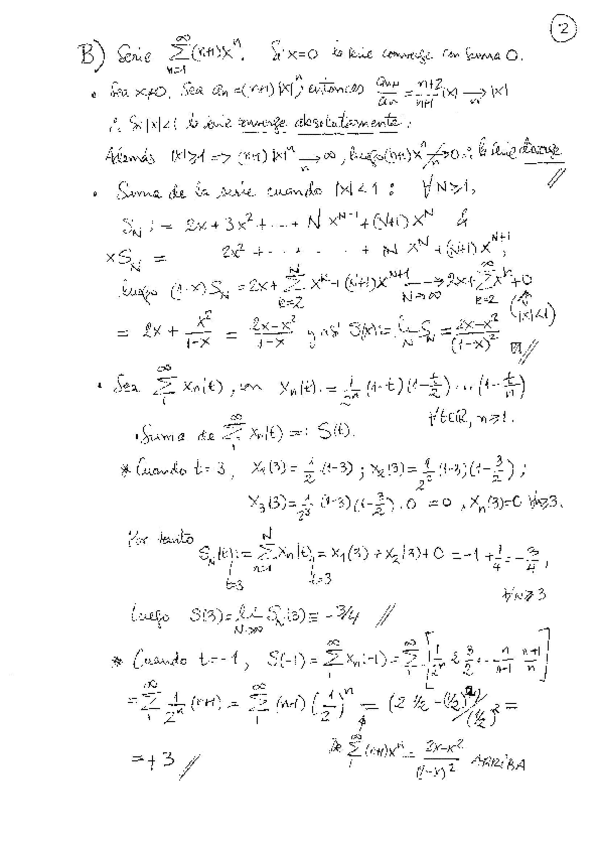 2
B) Serie ∑_{n=1}^{∞} (n+1)x^n. Si x=0 la serie converge con suma 0.
• Sea x≠0. Sea a_n = (n+1)|x|^n; entonces a_{n+1}/a_n = (n+2)/(n+1) |x| →_n |x|
∴ Si |x|<1 la serie converge absolutamente.
Además |x|≥1 => (n+1)|x|^n →_n ∞, luego (n+1)x^n ↛ 0 ∴ la serie diverge //
• Suma de la serie cuando |x|<1 : ∀N≥1,
S_N := 2x + 3x^2 + ... + N x^{N-1} + (N+1) x^N &
x S_N = 2x^2 + ... + N x^N + (N+1) x^{N+1},
luego (1-x) S_N = 2x + ∑_{k=2}^{N} x^k - (N+1) x^{N+1} →_{N→∞} 2x + ∑_{k=2}^{∞} x^k + 0
(|x|<1)
= 2x + x^2/(1-x) = (2x-x^2)/(1-x) y así S(x) = lim_N S_N = (2x-x^2)/(1-x)^2 //
• Sea ∑_{1}^{∞} x_n(t), con x_n(t) = 1/2^n (1-t)(1-t/2)...(1-t/n)
∀t∈ℝ, n≥1.
• Suma de ∑_{1}^{∞} x_n(t) =: S(t).
* Cuando t=3, x_1(3) = 1/2 (1-3) ; x_2(3) = 1/2^2 (1-3)(1-3/2) ;
x_3(3) = 1/2^3 (1-3)(1-3/2).0 = 0, x_n(3)=0 ∀n≥3.
Por tanto
S_N(t)|_{t=3} = ∑_{n=1}^{N} x_n(t)|_{t=3} = x_1(3) + x_2(3) + 0 = -1 + 1/4 = -3/4,
∀N≥3
luego S(3) = lim_{N→∞} S_N(3) = -3/4 //
* Cuando t=-1, S(-1) = ∑_{1}^{∞} x_n(-1) = ∑_{1}^{∞} [1/2^n 2 3/2 ... n/(n-1) (n+1)/n]
= ∑_{1}^{∞} 1/2^n (n+1) = ∑_{1}^{∞} (n+1) (1/2)^n = (2 1/2 - (1/2)^2)/(1/2)^2 =
= +3 //
De ∑_{1}^{∞} (n+1)x^n = (2x-x^2)/(1-x)^2 ARRIBA